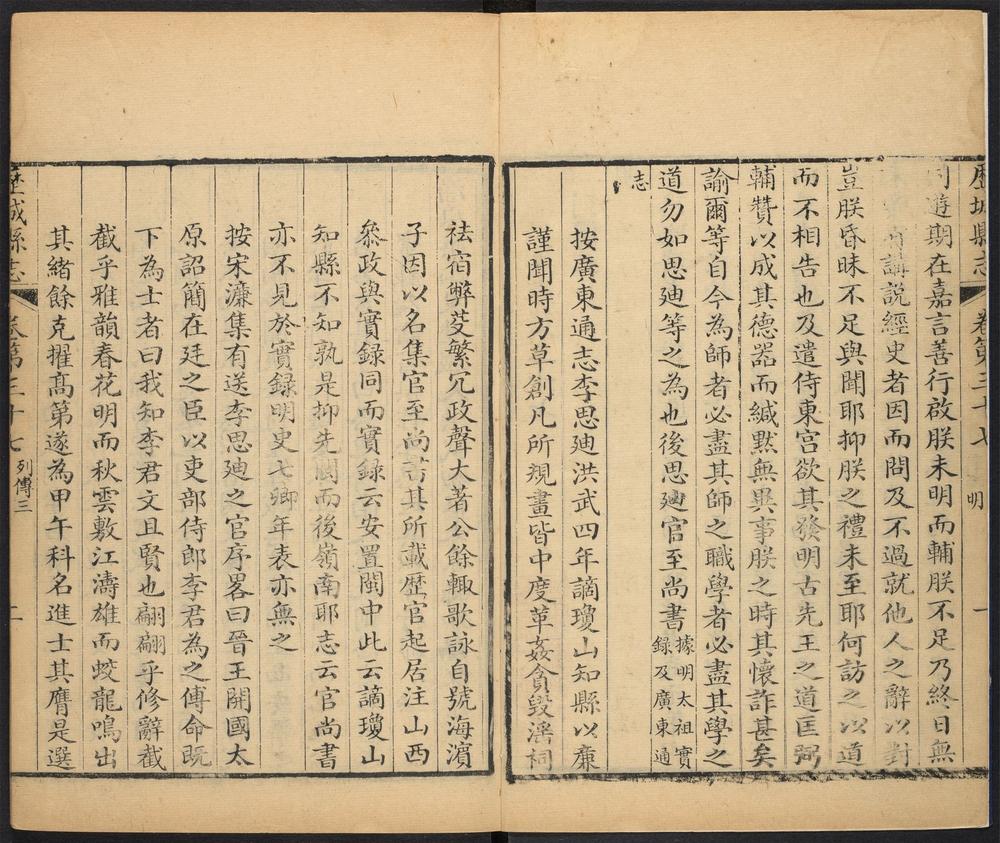 歷城縣志 卷第三十七 明 一
同遊期在嘉言善行啟朕未明而輔朕不足乃終日無
講說經史者因而問及不過就他人之辭以對
豈朕昏昧不足與聞耶抑朕之禮未至耶何訪之以道
而不相告也及遣侍東宮欲其發明古先王之道匡弼
輔贊以成其德器而緘默無異事朕之時其懷詐甚矣
諭爾等自今為師者必盡其師之職學者必盡其學之
道勿如思廸等之為也後思廸官至尚書據明太祖實錄及廣東通
志
按廣東通志李思廸洪武四年謫瓊山知縣以廉
謹聞時方草創凡所規畫皆中度革姦貪毀滛祠
袪宿弊芟繁冗政聲大著公餘輙歌詠自號海濵
子因以名集官至尚書其所載歷官起居注山西
叅政與實録同而實録云安置閩中此云謫瓊山
知縣不知孰是抑先閩而後嶺南耶志云官尚書
亦不見於實録明史七卿年表亦無之
按宋濂集有送李思廸之官序畧曰晉王開國太
原詔簡在廷之臣以吏部侍郎李君為之傅命既
下為士者曰我知李君文且賢也翩翩乎修辭截
截乎雅韻春花明而秋雲敷江濤雄而蛟龍鳴出
其緒餘克擢髙第遂為甲午科名進士其膺是選
歷城縣志 卷第三十七 列傳三 二